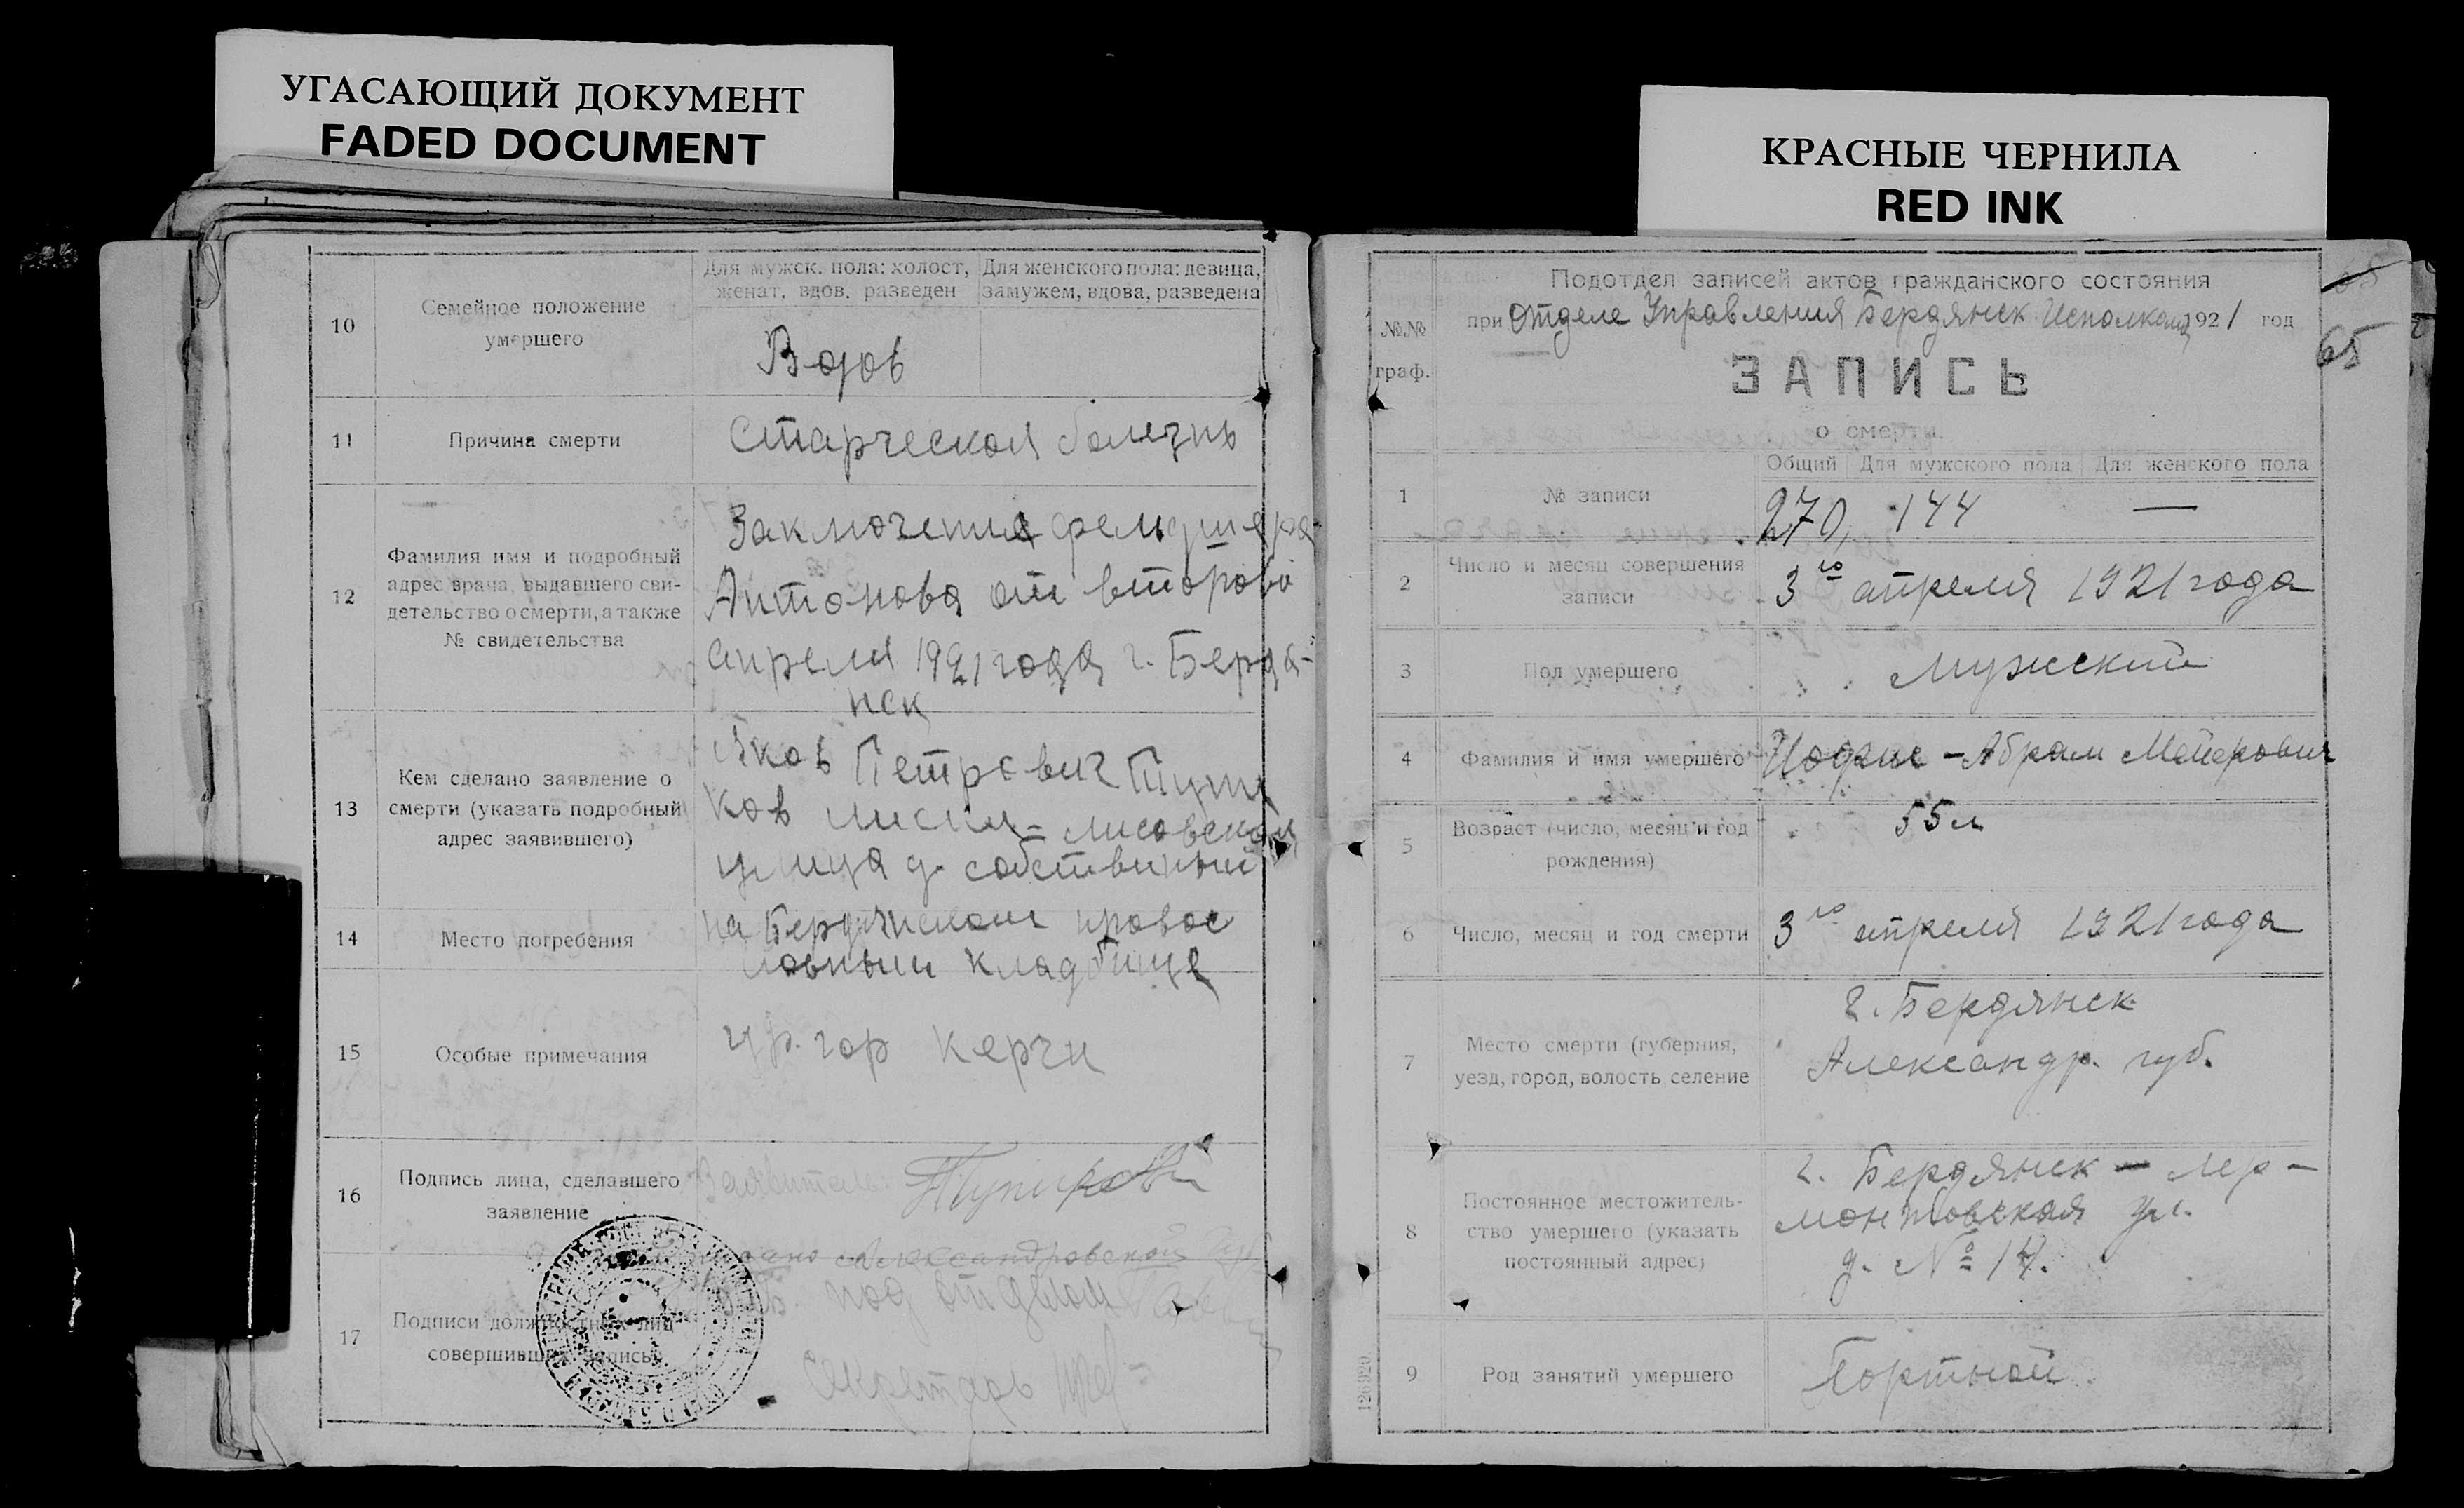 УГАСАЮЩИЙ ДОКУМЕНТ
FADED DOCUMENT
КРАСНЫЕ ЧЕРНИЛА
RED INK
10
Семейное положение
умершего
Для мужск. пола: холост,
женат. вдов. разведен
Для женского пола: девица,
замужем, вдова, разведена
Вдов
11
Причина смерти
Старческая болезнь
12
Фамилия имя и подробный
адрес врача, выдавшего сви-
детельство о смерти, а также
№ свидетельства
Заключения фельдшера
Антонова от второво
апреля 1921 года г. Бердя-
нск
13
Кем сделано заявление о
смерти (указать подробный
адрес заявившего)
Яков Петрович
ков
улица д. собствиный
14
Место погребения
на Бердянском правос
лавным кладбище
15
Особые примечания
гр. гор Керчи
16
Подпись лица, сделавшего
заявление
Заявитель
17
Подписи должностных лиц
совершивших запись
Александровской
под отделом
Секретарь
№.№
граф.
Подотдел записей актов гражданского состояния
при Отделе Управления Бердянск Исполкома 1921 год
65
ЗАПИСЬ
о смерти.
1
№ записи
Общий
Для мужского пола
Для женского пола
270, 144 —
2
Число и месяц совершения
записи
3го апреля 1921 года
3
Пол умершего
Мужский
4
Фамилия и имя умершего
Абрам Мейерович
5
Возраст (число, месяц и год
рождения)
55 л
6
Число, месяц и год смерти
3го апреля 1921 года
7
Место смерти (губерния,
уезд, город, волость, селение
г. Бердянск
Александр. губ.
8
Постоянное местожитель-
ство умершего (указать
постоянный адрес)
г. Бердянск — Лер-
монтовская ул.
д. № 14.
9
Род занятий умершего
Портной
126920